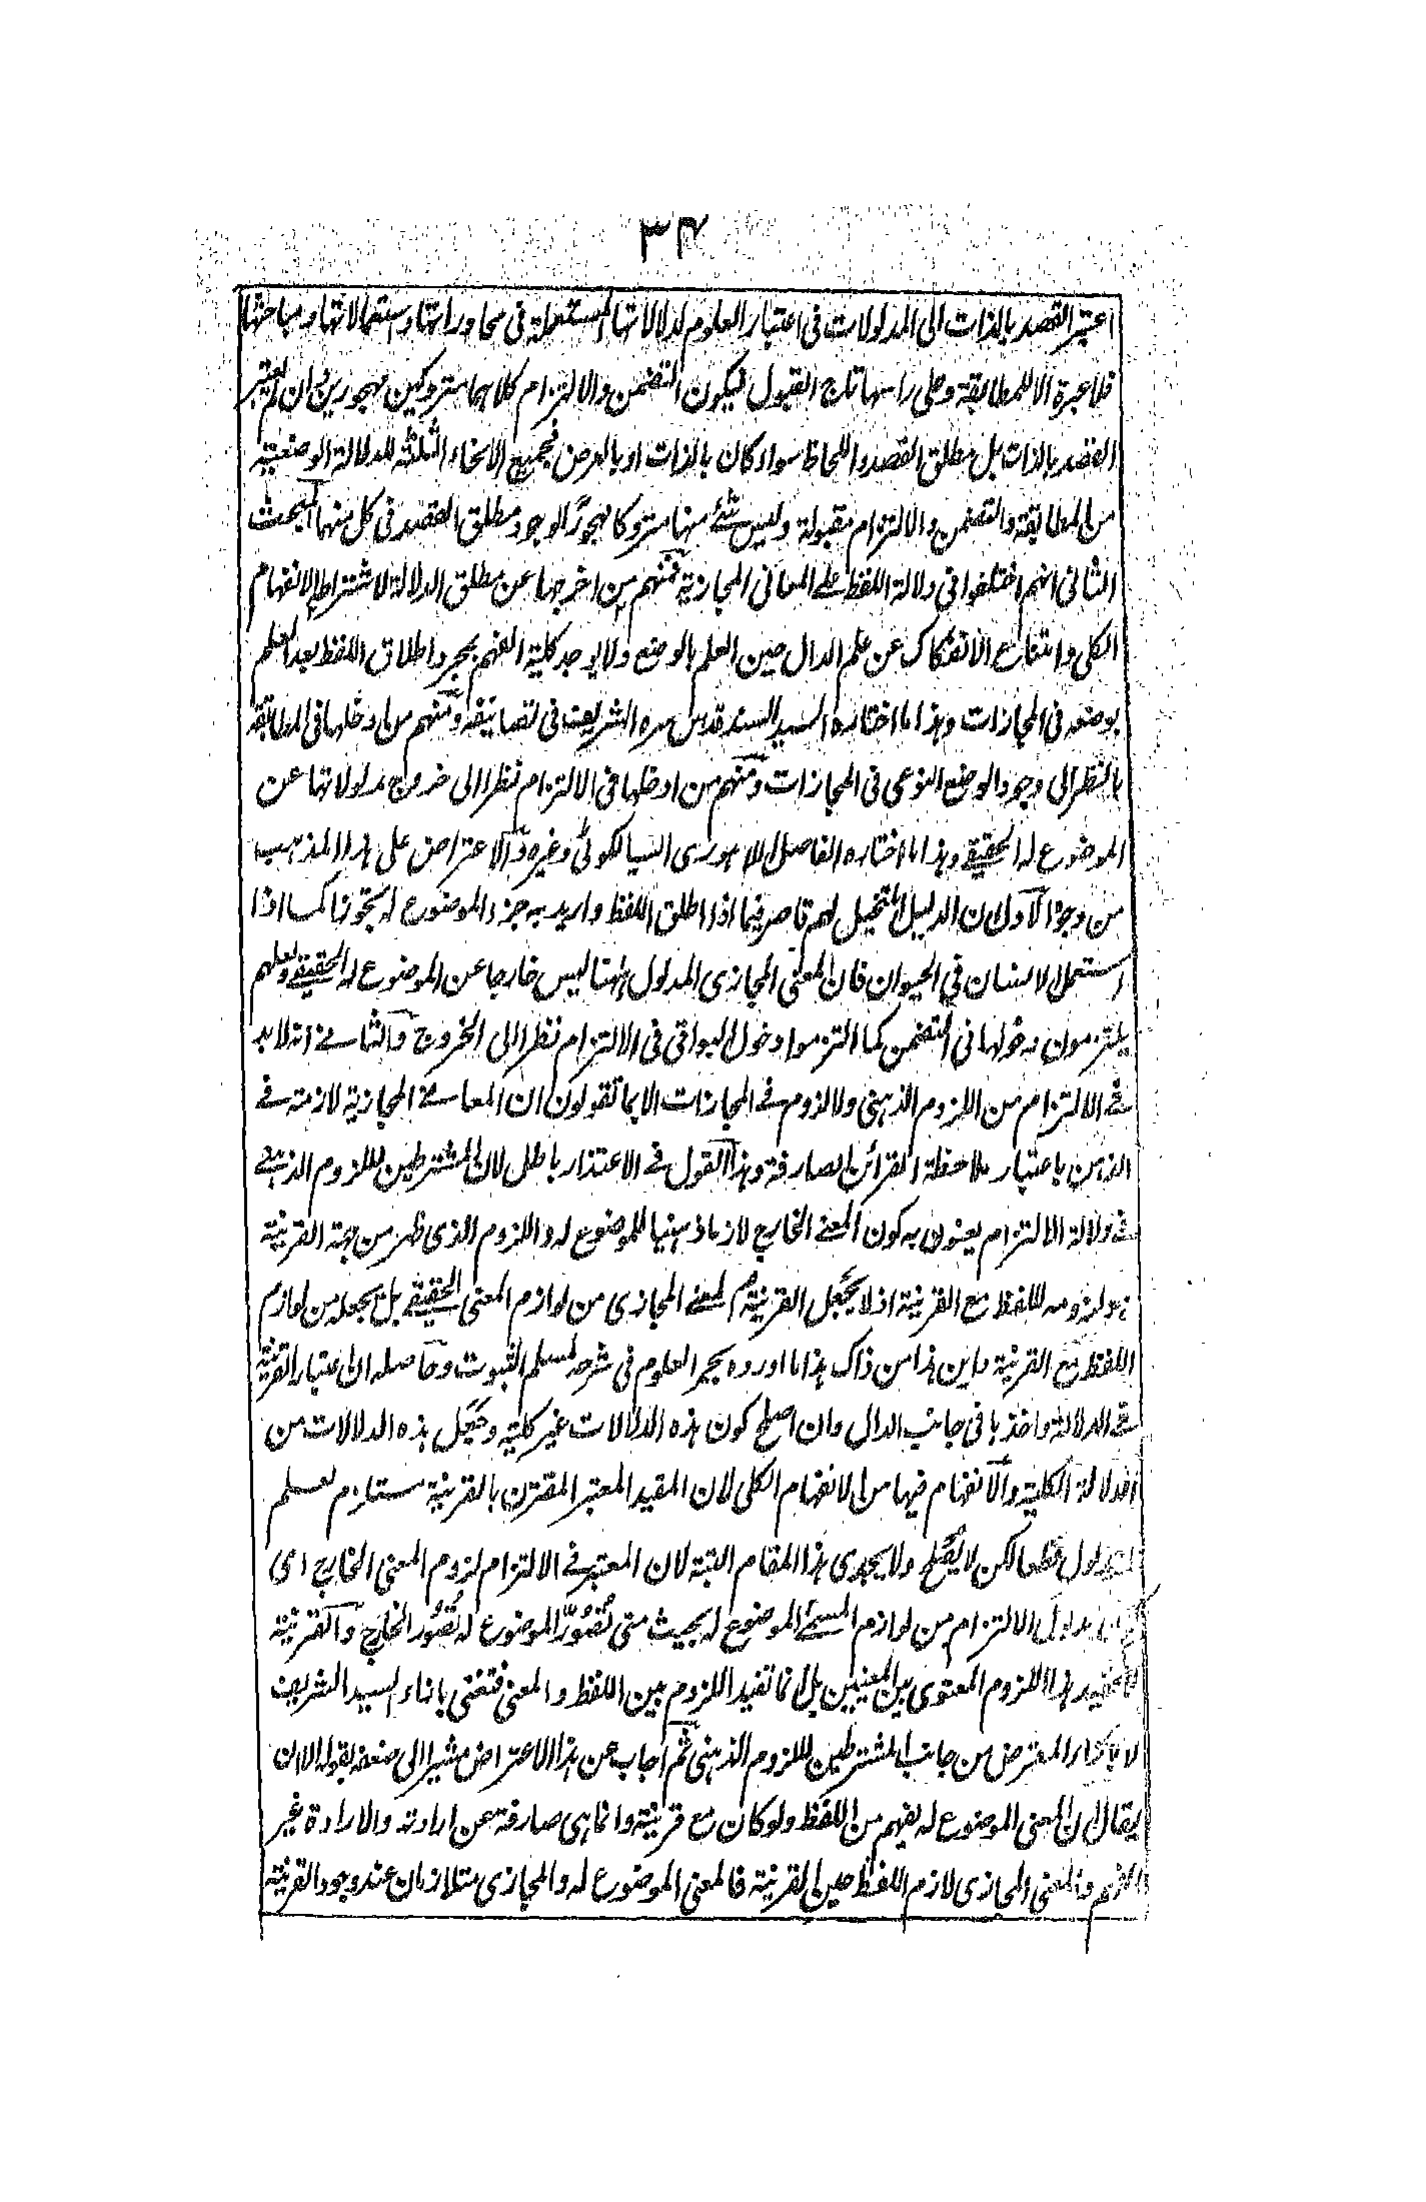 ٣٤
اعتبر القصد بالذات الى المدلولات فى اعتبار العلوم لدلالاتها المستعملة فى محاوراتها واستعمالاتها ومباحثها
فلا عبرة الا للمطابقة وعلى راسها تاج القبول فيكون التضمن والالتزام كلاهما متروكين مهجورين وان لم يعتبر
القصد بالذات بل مطلق القصد واللحاظ سواء كان بالذات او بالعرض فجميع الانحاء الثلثة للدلالة الوضعية
من المطابقة والتضمن والالتزام مقبولة وليس شئ منها متروكا مهجورا لوجود مطلق القصد فى كل منها المبحث
الثانى انهم اختلفوا فى دلالة اللفظ على المعانى المجازية فمنهم من اخرجها عن مطلق الدلالة لاشتراط الانفهام
الكلى وامتناع الانفكاك عن علم الدال حين العلم بالوضع ولا يوجد كلية الفهم بمجرد اطلاق اللفظ بعد العلم
بوضعه فى المجازات وهذا ما اختاره السيد السند قدس سره الشريف فى تصانيفه ومنهم من ادخلها فى المطابقة
بالنظر الى وجود الوضع النوعى فى المجازات ومنهم من ادخلها فى الالتزام نظرا الى خروج مدلولاتها عن
الموضوع له الحقيقے وهذا ما اختاره الفاضل اللاهورى السيالكوٹى وغيره والاعتراض على هذا المذهب
من وجوه الاول ان الدليل المتخيل لهم قاصر فيما اذا اطلق اللفظ واريد به جزء الموضوع له تجوزا كما اذا
استعمل الانسان في الحيوان فان المعنى المجازى المدلول ههنا ليس خارجا عن الموضوع له الحقيقے ولعلهم
يلتزمون دخولها فى التضمن كما التزموا دخول البواقى فى الالتزام نظرا الى الخروج والثانے انه لا بد
فے الالتزام من اللزوم الذهنى ولا لزوم فے المجازات الا بما تقولون ان المعانے المجازية لازمة فے
الذهن باعتبار ملاحظة القرائن الصارفة وهذا القول فے الاعتذار باطل لان المشترطين للزوم الذهنے
فے دلالة الالتزام يعنون به كون المعنے الخارج لازما ذهنيا للموضوع له واللزوم الذى ظهر من جهة القرينة
هو لزومه للفظ مع القرينة اذ لا يجعل القرينة المعنے المجازى من لوازم المعنى الحقيقے بل يجعله من لوازم
اللفظ مع القرينة واين هذا من ذاك هذا ما اورده بحر العلوم فى شرحه لمسلم الثبوت وحاصله ان اعتبار القرينة
فے الدلالة واخذها فى جانب الدال وان اصلح كون هذه الدلالات غير كلية وجعل هذه الدلالات من
الدلالة الكلية والانفهام فيها من الانفهام الكلى لان المقيد المعتبر المقترن بالقرينة مستلزم لعلم
المدلول قطعا لكن لا يصلح ولا يجدى هذا المقام البتة لان المعتبر فے الالتزام لزوم المعنى الخارج اى
مدلول الالتزام من لوازم المسمے الموضوع له بحيث متى تصور الموضوع له تصور الخارج والقرينة
لا تفيد هذا اللزوم المعنوى بين المعنيين بل انما تفيد اللزوم بين اللفظ والمعنى السيد الشريف
المعترض من جانب المشترطين للزوم الذهنى ثم اجاب عن هذا الاعتراض مشيرا الى ضعفه بقوله الا ان
يقال ان المعنى الموضوع له يفهم من اللفظ ولو كان مع قرينة وانما هى صارفة عن ارادته والارادة غير
الفهم والمعنى المجازى لازم اللفظ حين القرينة فالمعنى الموضوع له والمجازى متلازمان عند وجود القرينة